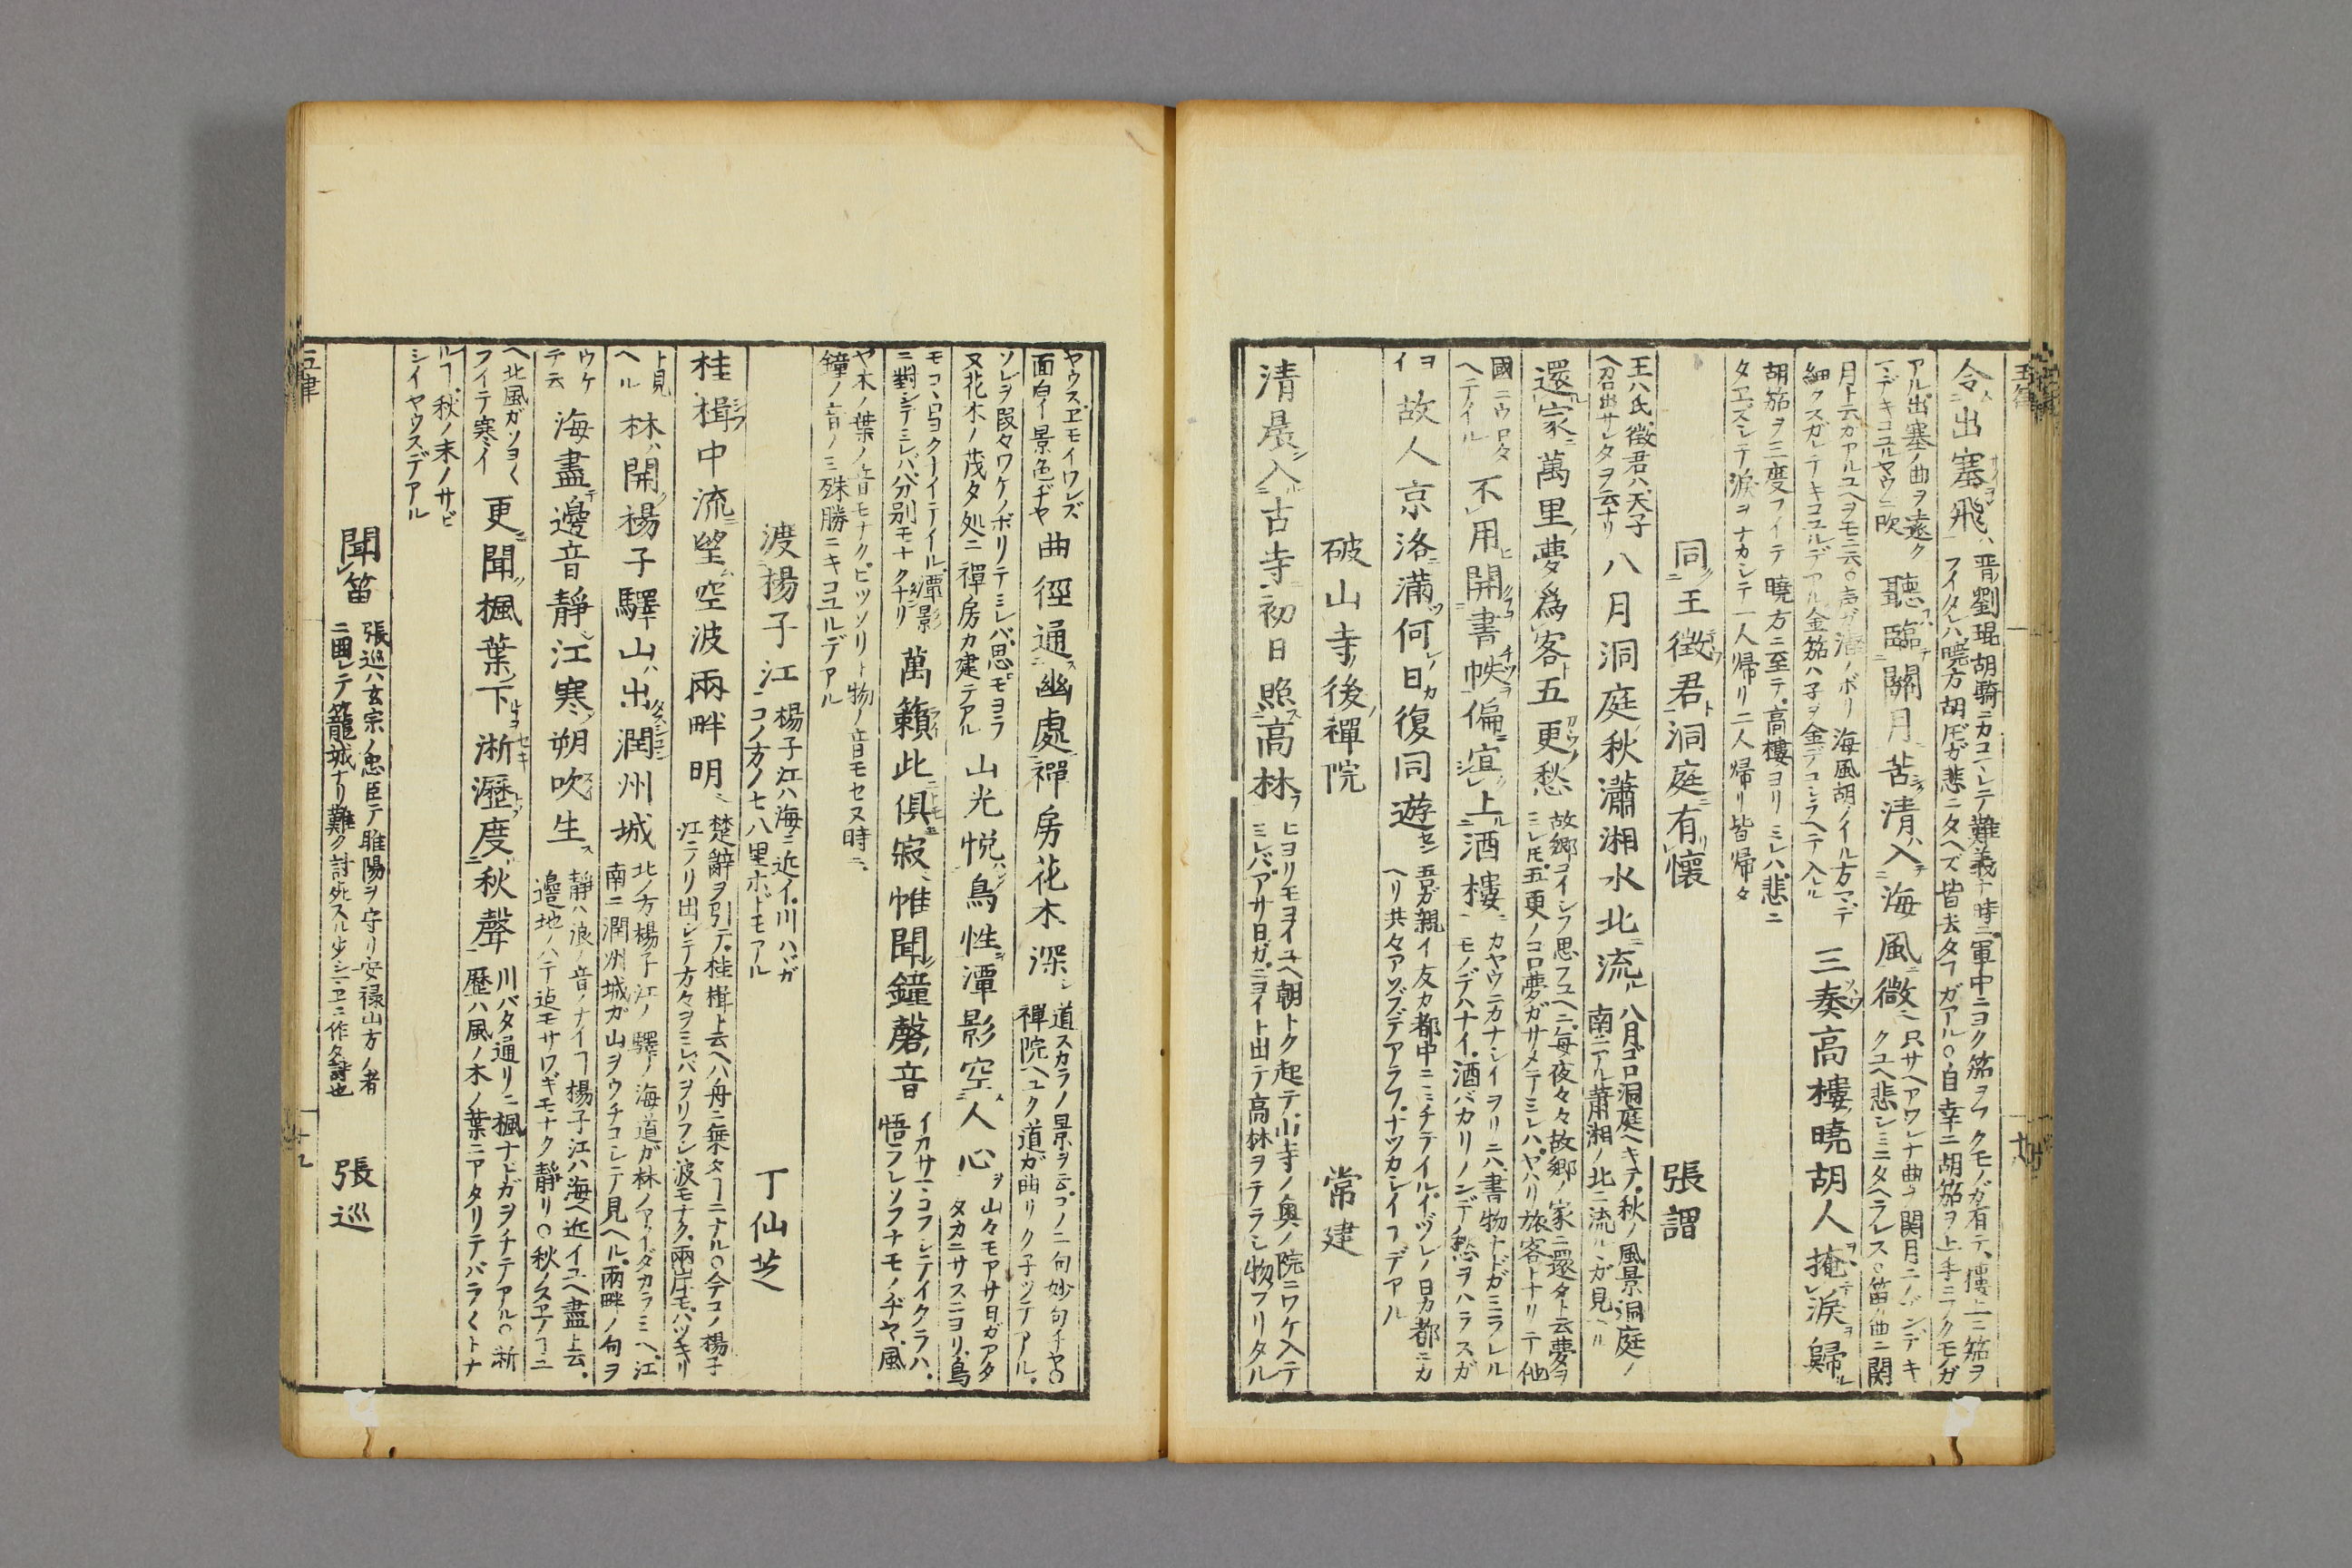 令出塞飛
晋劉琨胡騎ニカコマレテ難義ナ時ニ軍中ニヨク笳ヲフクモノガ有テ樓上ニ笳ヲ
フイタレバ曉方胡兵ガ悲ニタヘズ皆去タヿガアル○自幸ニ胡笳ヲ上手ニフクモノガ
アル出塞ノ曲ヲ遠ク
マデキコユルヤウニ吹
聽臨關月苦清入海風微
只サヘアワレナ曲ヲ関月ニノゾンデキ
クユヘ悲シミニタヘラレス○笛ノ曲ニ関
月ト云カアルユヘヲモニ云○声ガ清ノボリ海風胡ノイル方マデ
細クスガレテキコユルデアル金笳ハ子ヲ金デコシラヘテ入ル
三奏高樓曉胡人掩淚歸
胡笳ヲ三度フイテ曉方ニ至テ高樓ヨリミレハ悲ニ
タエズシテ淚ヲナカシテ一人帰リ二人帰リ皆帰タ
同王徴君洞庭有懷
張謂
王ハ氏徴君ハ天子
ヘ召出サレタヲ云ナリ
八月洞庭秋瀟湘水北流
八月ゴロ洞庭ヘキテ秋ノ風景洞庭ノ
南ニアル蕭湘ノ北ニ流ルヽガ見ヘル
還家萬里夢爲客五更愁
故郷コイシフ思フユヘニ毎夜々々故郷ノ家ニ還タト云夢ヲ
ミレ𪜈五更ノコロ夢ガサメテミレハヤハリ旅客トナリテ他
國ニウロタ
ヘテイル
不用開書帙偏宜上酒樓
カヤウニカナシイヲリニハ書物ナドガミラレル
モノデハナイ酒バカリノンデ愁ヲハラスガ
ヨ
イ
故人京洛滿何日復同遊
吾ガ親イ友カ都中ニミチテイルイヅレノ日カ都ニカ
ヘリ共々アソブデアラフナツカシイヿデアル
破山寺後禪院
常建
清晨入古寺初日照高林
ヒヨリモヨイユヘ朝トク起テ山寺ノ奥ノ院ニワケ入テ
ミレバアサ日ガニヨイト出テ高林ヲテラシ物フリタル
ヤウスヱモイワレズ
面白イ景色ヂヤ
曲徑通幽處禪房花木深
道スカラノ景ヲ云フノ二句妙句ヂヤ○
禪院ヘユク道ガ曲リク子ツテアル
ソレヲ段々ワケノボリテミレバ思モヨラフ
又花木ノ茂タ処ニ禪房カ建テアル
山光悦鳥性潭影空人心
山々モアサ日ガアタ
タカニサスニヨリ鳥
モコヽロヨクナイテイル潭影
ニ對シテミレバ分別モナクナリ
萬籟此俱寂惟聞鐘磬音
イカサマコフシテイクラハ
悟ラレソフナモノヂヤ風
ヤ木ノ葉ノ音モナクヒツソリト物ノ音モセヌ時ニ
鐘ノ音ノミ殊勝ニキコユルデアル
渡揚子江
揚子江ハ海ニ近イ川ハヾガ
コノ方ノ七八里ホドモアル
丁仙芝
桂楫中流望空波兩畔明
楚辭ヲ引テ桂楫ト云ヘハ舟ニ乗タヿニナル○今コノ揚子
江ニノリ出シテ方々ヲミレバヲリフシ波モナク兩岸モハツキリ
ト見
ヘル
林開揚子驛山出潤州城
北ノ方揚子江ノ驛ノ海道ガ林ノアイダカラミヘ江
南ニ潤州城ガ山ヲウチコシテ見ヘル兩畔ノ句ヲ
ウケ
テ云
海盡邊音靜江寒朔吹生
靜ハ浪ノ音ノナイヿ揚子江ハ海ヘ近イユヘ盡ト云
邊地ノハテ迄モサワギモナク靜リ○秋ノスヱノヿニ
ヘ北風ガソヨ〱
フイテ寒イ
更聞楓葉下淅瀝度秋聲
川バタ通リニ楓ナドガヲチテアル○淅
歴ハ風ノ木ノ葉ニアタリテバラ〱トナ
ルヿ秋ノ末ノサビ
シイヤウスデアル
聞笛
張巡ハ玄宗ノ忠臣テ睢陽ヲ守リ安禄山方ノ者
ニ圍レテ籠城ナリ難ク討死スル少シマヱニ作タ詩也
張巡
五律
十九